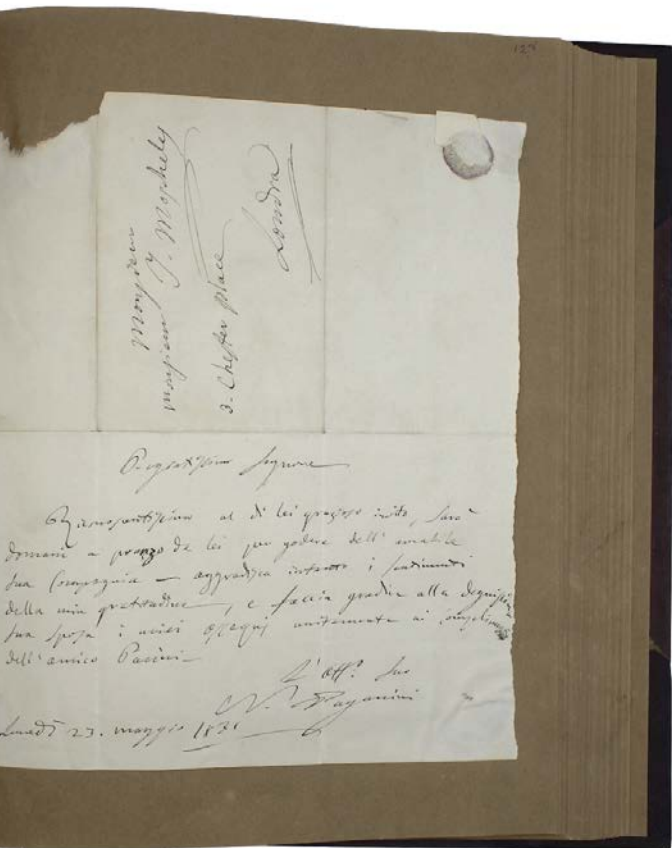 Monsieur
Monsieur J. Mosheles
3. Chester place
Londra
Pregiatissimo Signore
Riconoscentissimo al di lei grazioso invito, sarò
domani a pranzo da lei per godere dell' amabile
sua Compagnia — aggradisca intanto i sentimenti
della mia gratitudine, e faccia gradire alla degnissima
sua sposa i miei ossequj unitamente ai complimenti
dell' amico Pacini —
L' Aff.º Suo
N. Paganini
Lunedì 23. maggio 1831